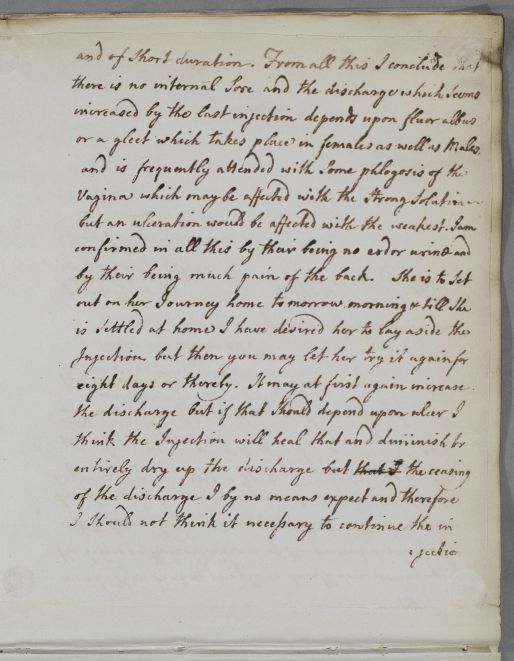 and of Short duration. From all this I conclude that
there is no internal Sore and the discharge which Seems
increased by the last injection depends upon fluor albus
or a gleet which takes place in females as well as Males.
and is frequently attended with Some phlogosis of the
Vagina which may be affected with the Strong Solution
but an ulceration would be affected with the weakest. I am
confirmed in all this by their being no ardor urinæ and
by their being much pain of the back. She is to Set
out on her Journey home to morrow morning & till She
is Settled at home I have desired her to lay aside the
Injection but then you may let her try it again for
eight days or thereby. It may at first again increase
the discharge but if that Should depend upon ulcer I
think the Injection will heal that and diminish or
entirely dry up the discharge but that I the ceasing
of the discharge I by no means expect and therefore
I Should not think it necessary to continue the in
jectio